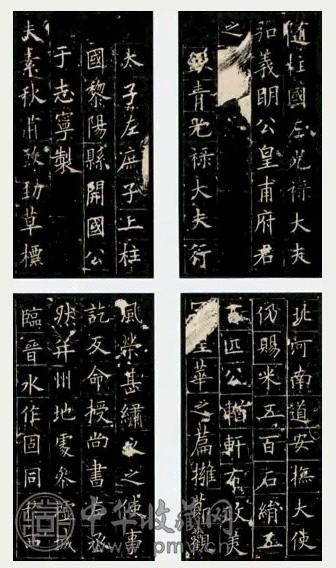 隨柱國左光祿大夫
弘義明公皇甫府君
之
青光祿大夫行
太子左庶子上柱
國黎陽縣開國公
于志寧製
夫素秋肅煞勁草標
北河南道安撫大使
仍賜米五百石絹五
百匹公輶軒布政美
皇華之篇擁節觀
風榮甚繡之使事
訖反命授尚書丞
然并州地處參墟城
臨晉水作固同西
中华收藏网